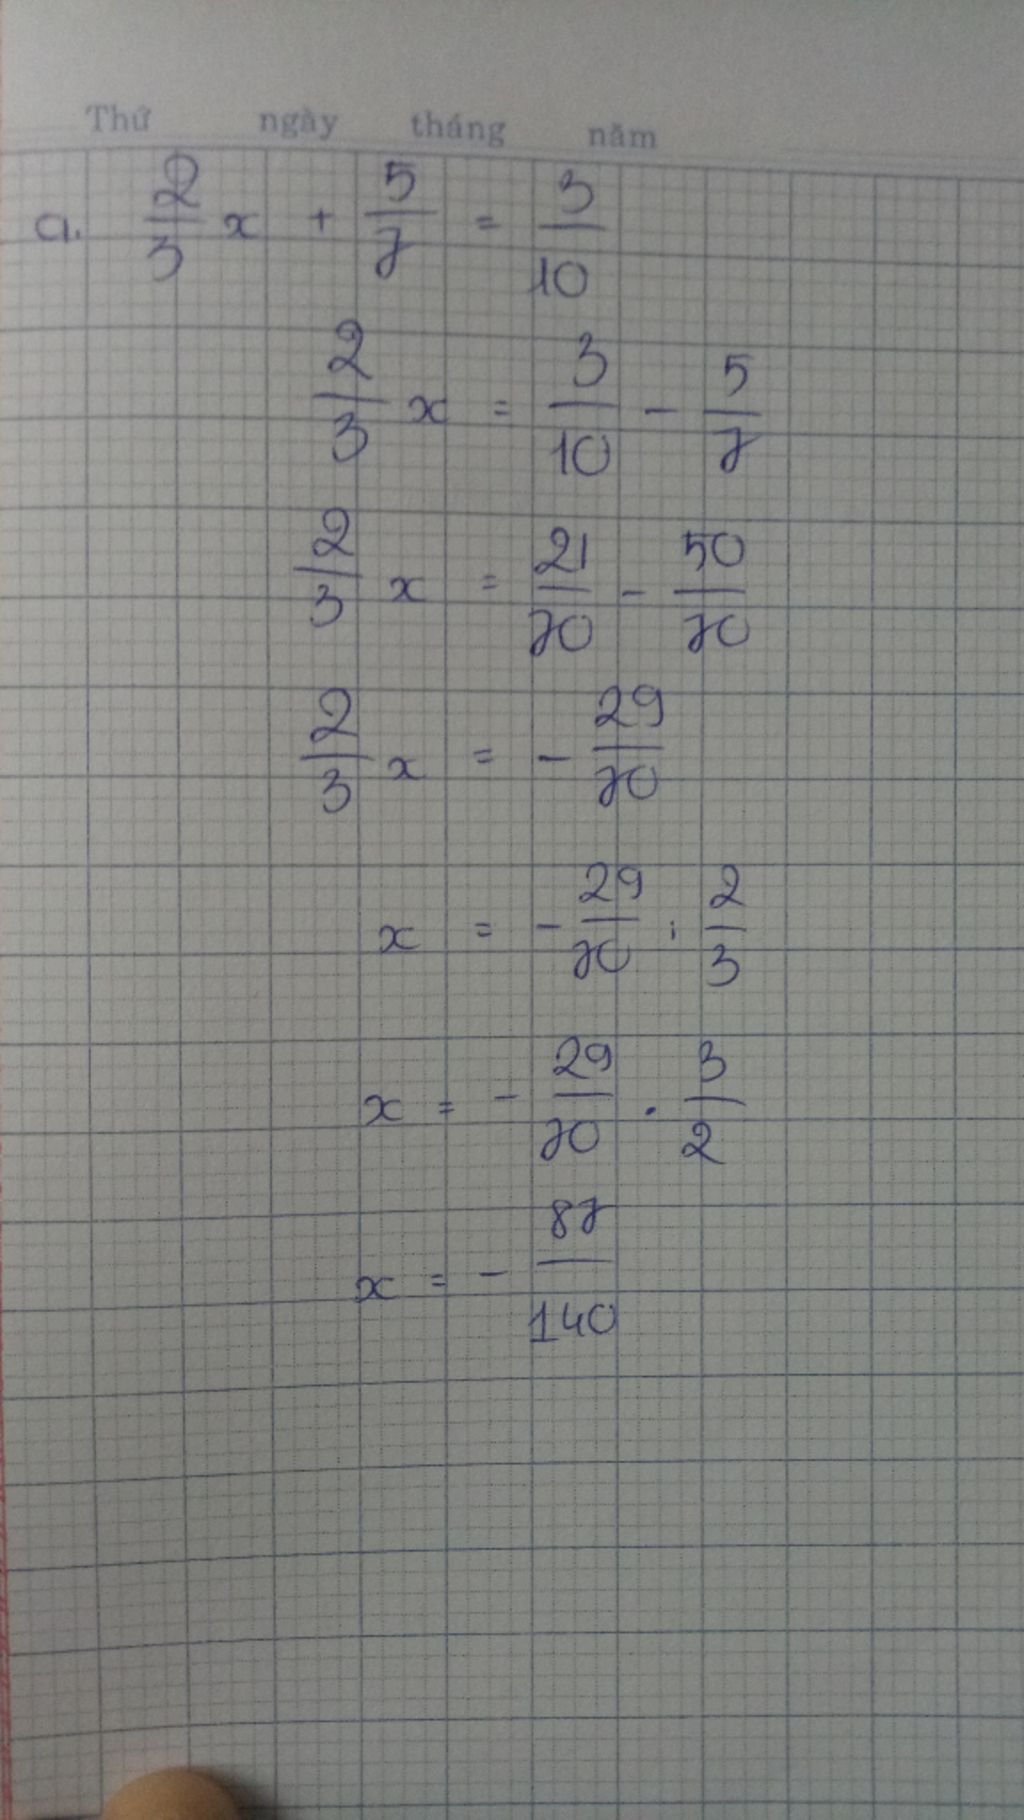 Thứ ngày tháng năm
a. 2/3 x + 5/7 = 3/10
2/3 x = 3/10 - 5/7
2/3 x = 21/70 - 50/70
2/3 x = - 29/70
x = - 29/70 : 2/3
x = - 29/70 . 3/2
x = - 87/140